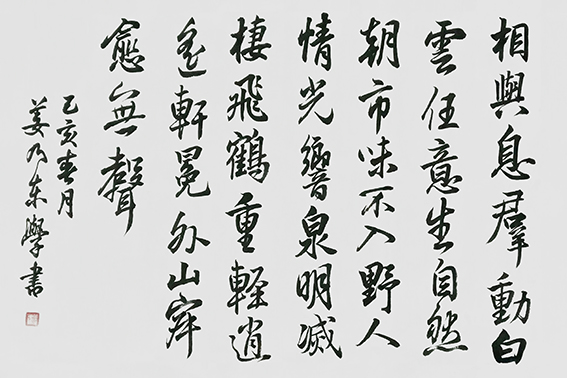 相與息群動白
雲任意生自然
朝市味不入野人
情光響泉明滅
棲飛鶴重輕逍
遙軒冕外山
愈無聲
乙亥春月
姜乃東學書